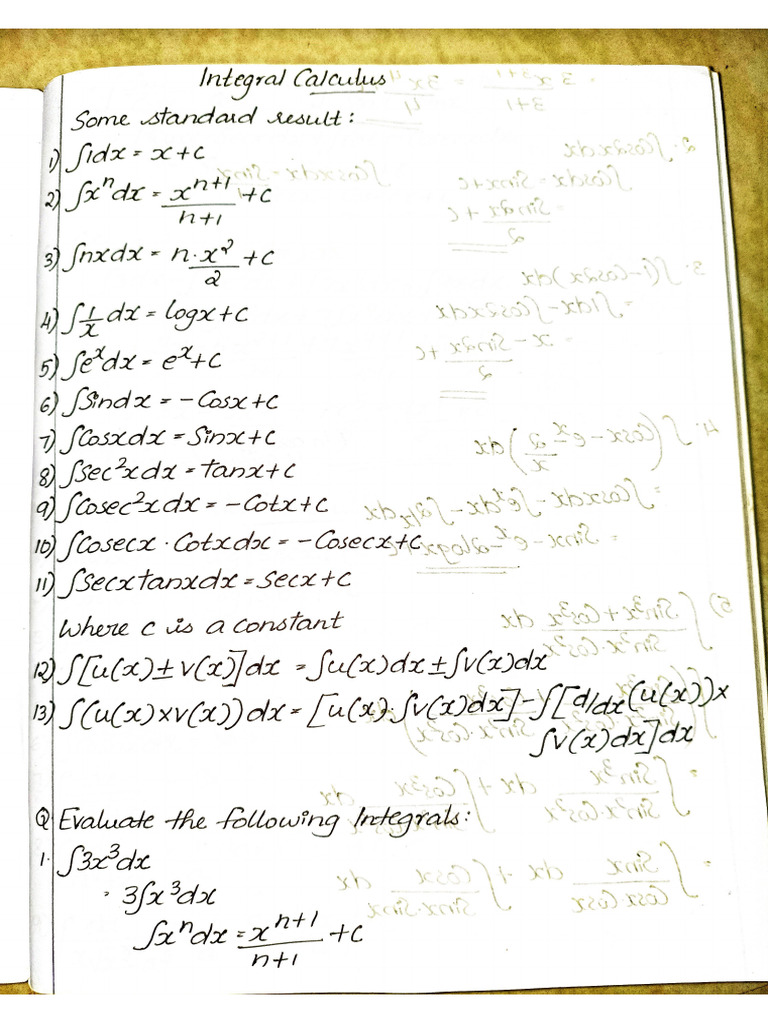 Integral Calculus
Some standard result:
1) ∫1dx = x+c
2) ∫xⁿdx = xⁿ⁺¹/n+1 +c
3) ∫nxdx = n·x²/2 +c
4) ∫1/x dx = logx+c
5) ∫eˣdx = eˣ+c
6) ∫Sindx = -Cosx+c
7) ∫Cosxdx = Sinx+c
8) ∫Sec²xdx = tanx+c
9) ∫Cosec²xdx = -Cotx+c
10) ∫Cosecx·Cotxdx = -Cosecx+c
11) ∫Secxtanxdx = Secx+c
Where c is a constant
12) ∫[u(x)±v(x)]dx = ∫u(x)dx±∫v(x)dx
13) ∫(u(x)×v(x))dx = [u(x)·∫v(x)dx]-∫[d/dx(u(x))×
∫v(x)dx]dx
Q. Evaluate the following Integrals:
1. ∫3x³dx
= 3∫x³dx
∫xⁿdx = xⁿ⁺¹/n+1 +c